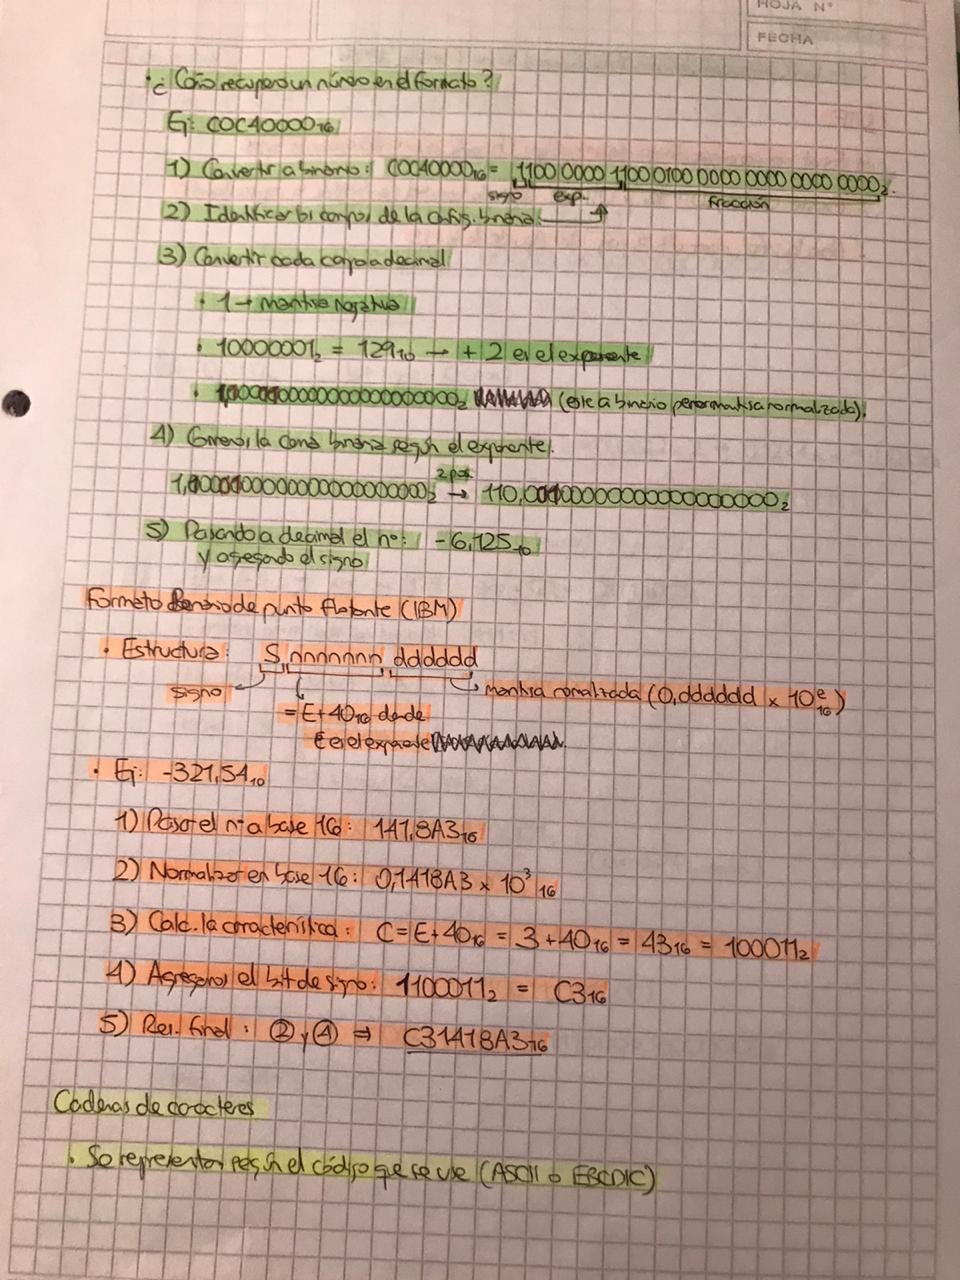 HOJA N°
FECHA
• ¿Cómo recupero un número en el formato?
Ej: C0C40000₁₆
1) Convertir a binario: C0C40000₁₆ = 1100 0000 1100 0100 0000 0000 0000 0000₂.
signo exp. fracción
2) Identificar los campos de la config. binaria.
3) Convertir cada campo a decimal
• 1 → mantisa negativa
• 10000001₂ = 129₁₀ → + 2 es el exponente
(este a binario pero mantisa normalizada).
4) la coma binaria según el exponente.
2 pos.
5) Pasando a decimal el nº: -6,125₁₀
y agregando el signo
Formato de punto flotante (IBM)
• Estructura: S nnnnnnn dddddd
signo mantisa normalizada (0,dddddd x 10ᵉ₁₆)
= E+40₁₆ donde
E es el exponente
• Ej: -321,54₁₀
1) Paso el nº a base 16: 141,8A3₁₆
2) Normalizar en base 16: 0,1418A3 x 10³₁₆
3) Calc. la característica: C=E+40₁₆ = 3+40₁₆ = 43₁₆ = 100011₂
4) Agregamos el bit de signo: 1100011₂ = C3₁₆
5) Res. final: ② y ④ ⇒ C31418A3₁₆
Cadenas de carácteres
• Se representan según el código que se use (ASCII o EBCDIC)